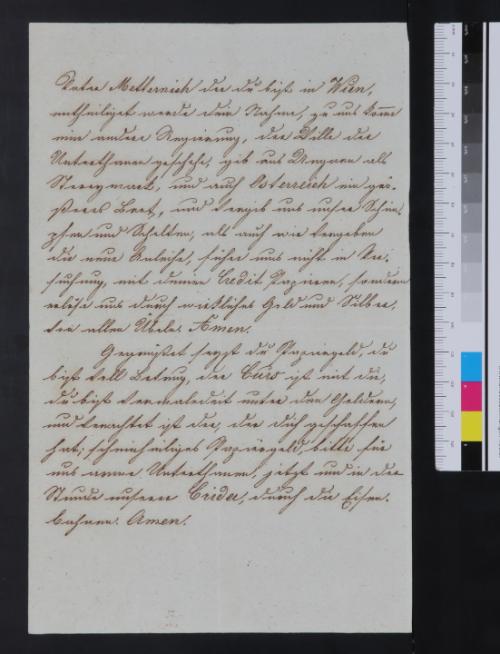 Vater Metternich der du bist in Wien,
entheiliget werde dein Nahme, zu uns komme
eine andere Regierung, der Wille der
Unterthanen geschehe, gib uns Ungarn als
Steyermark, und auch Österreich ein grö-
ßeres Brot, und vergib uns unser Schim-
pfen und Schelten, als auch wir vergeben
die neue Anleihe, führe uns nicht in Ver-
suchung, mit deinen Credit Papieren, sondern
erlöse uns durch wirkliches Geld und Silber,
von allem Übel. Amen.
Gegrüßet seyst du Papiergeld, du
bist voll Betrug, der Curs ist mit dir,
du bist vermaledeit unter den Geldern,
und verachtet ist der, der dich geschaffen
hat; scheinheiliges Papiergeld, bitte für
uns arme Unterthanen, jetzt und in der
Stunde unserer Crida, durch die Eisen-
bahnen. Amen.